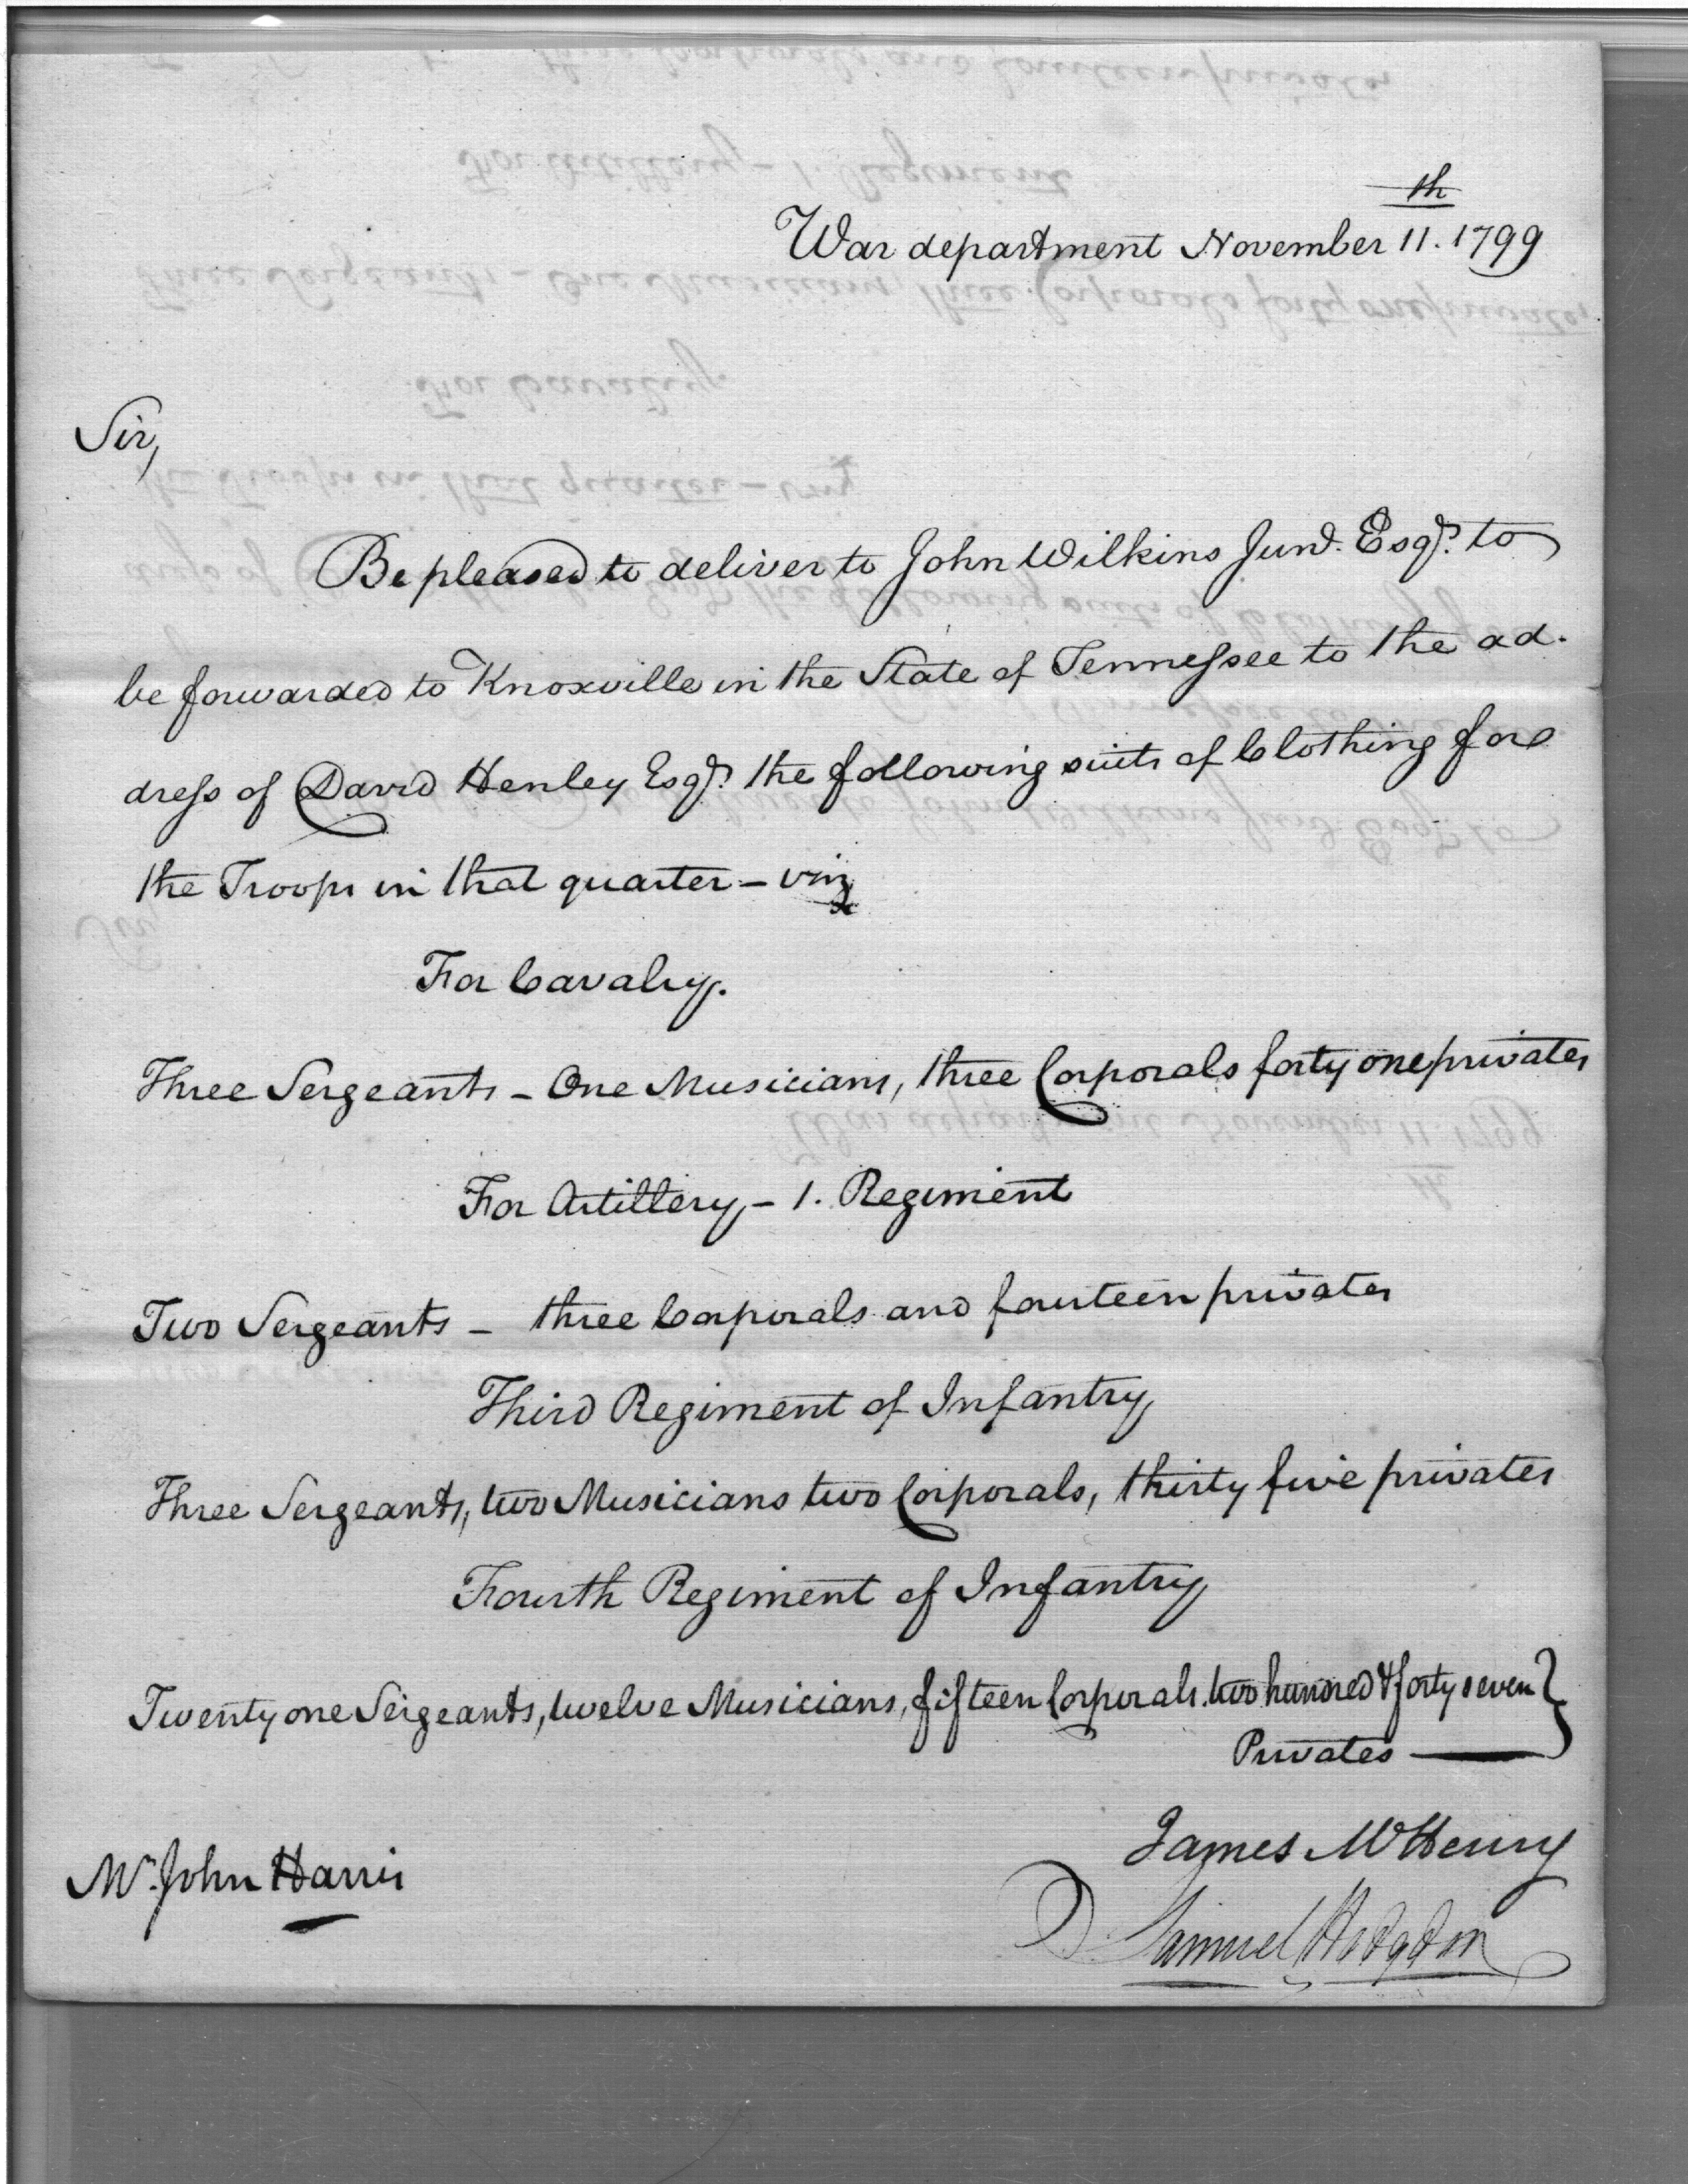 War department November 11.th 1799
Sir,
Be pleased to deliver to John Wilkins Junr. Esqr. to
be forwarded to Knoxville in the State of Tennessee to the ad-
dress of David Henley Esqr. the following suits of Clothing for
the Troops in that quarter – viz
For Cavalry.
Three Sergeants – One Musicians, three Corporals forty one privates
For Artillery – 1. Regiment
Two Sergeants – three Corporals and fourteen privates
Third Regiment of Infantry
Three Sergeants, two Musicians two Corporals, thirty five privates
Fourth Regiment of Infantry
Twenty one Sergeants, twelve Musicians, fifteen Corporals. two hundred & forty seven
Privates
James McHenry
Mr. John Harris
Samuel Hodgdon